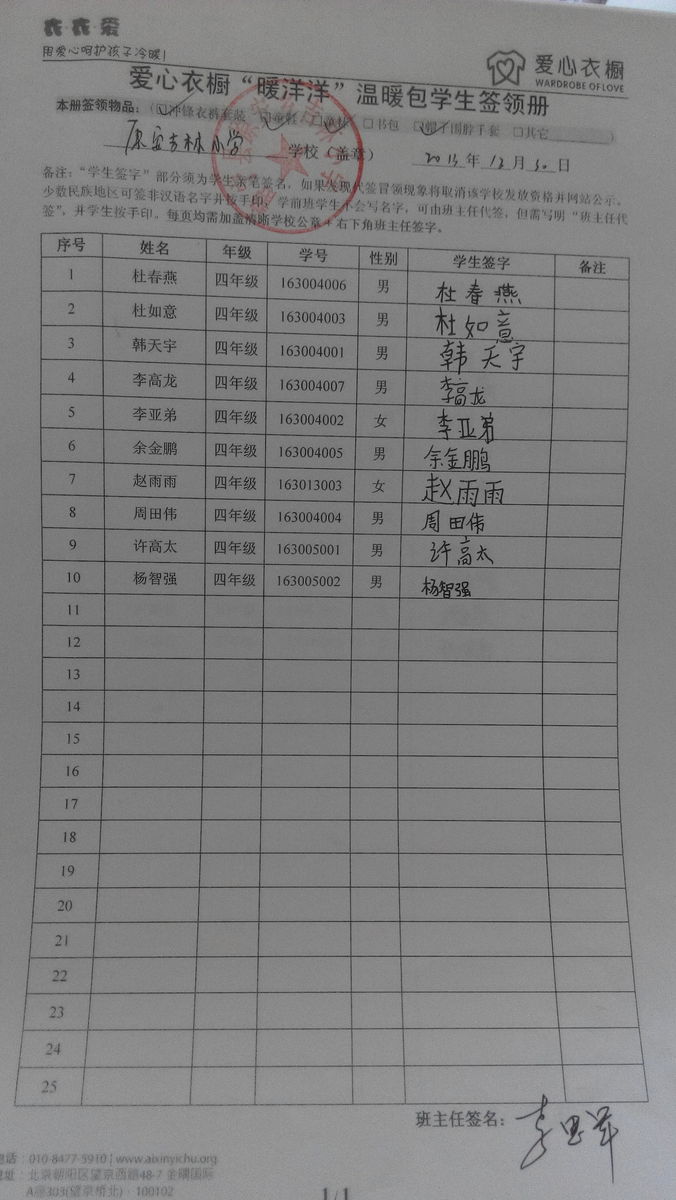 衣·衣·爱
用爱心呵护孩子冷暖!
爱心衣橱
WARDROBE OF LOVE
爱心衣橱“暖洋洋”温暖包学生签领册
本册签领物品：（☑冲锋衣裤套装 ☑童鞋 ☑童袜 □书包 ☑帽子围脖手套 □其它 ）
吉林小学 学校（盖章） 年12月30日
备注：“学生签字”部分须为学生亲笔签名，如果发现代签冒领现象将取消该学校发放资格并网站公示。
少数民族地区可签非汉语名字并按手印。学前班学生不会写名字，可由班主任代签，但需写明“班主任代
签”，并学生按手印。每页均需加盖清晰学校公章+右下角班主任签字。
序号 姓名 年级 学号 性别 学生签字 备注
1 杜春燕 四年级 163004006 男 杜春燕
2 杜如意 四年级 163004003 男 杜如意
3 韩天宇 四年级 163004001 男 韩天宇
4 李高龙 四年级 163004007 男 李高龙
5 李亚弟 四年级 163004002 女 李亚弟
6 余金鹏 四年级 163004005 男 余金鹏
7 赵雨雨 四年级 163013003 女 赵雨雨
8 周田伟 四年级 163004004 男 周田伟
9 许高太 四年级 163005001 男 许高太
10 杨智强 四年级 163005002 男 杨智强
11
12
13
14
15
16
17
18
19
20
21
22
23
24
25
班主任签名：
电话：010-8477-5910 | www.aixinyichu.org
地址：北京朝阳区望京西路48-7 金隅国际
A座303(望京桥北)·100102
1/1